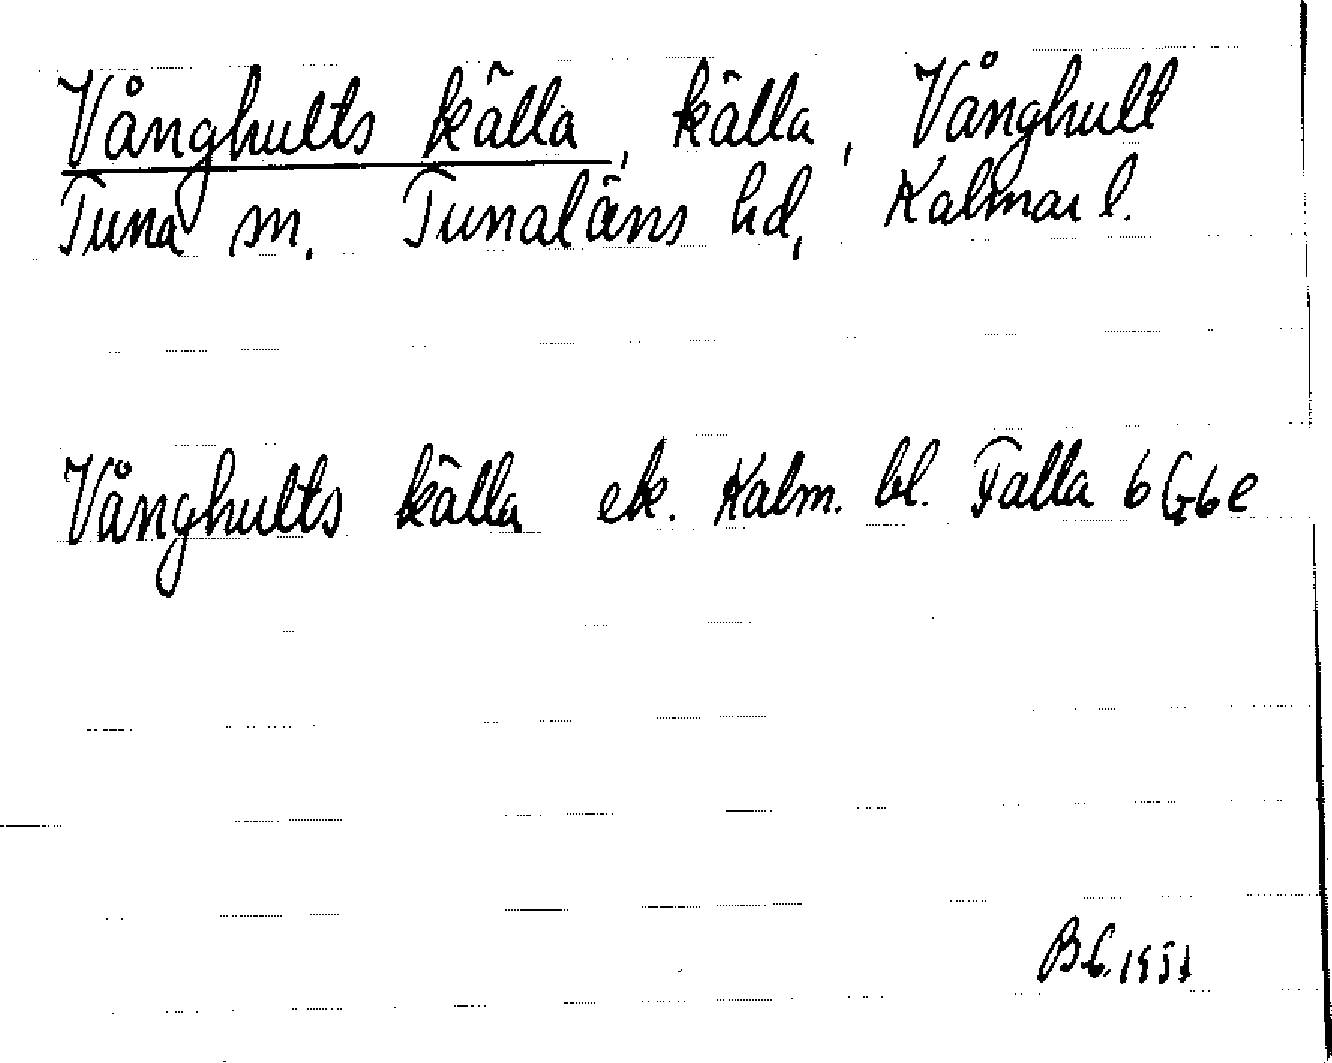 Vånghults källa, källa, Vånghult
Tuna sn. Tunaläns hd, Kalmar l.
Vånghults källa ek. Kalm. bl. Falla 6 G 6 e